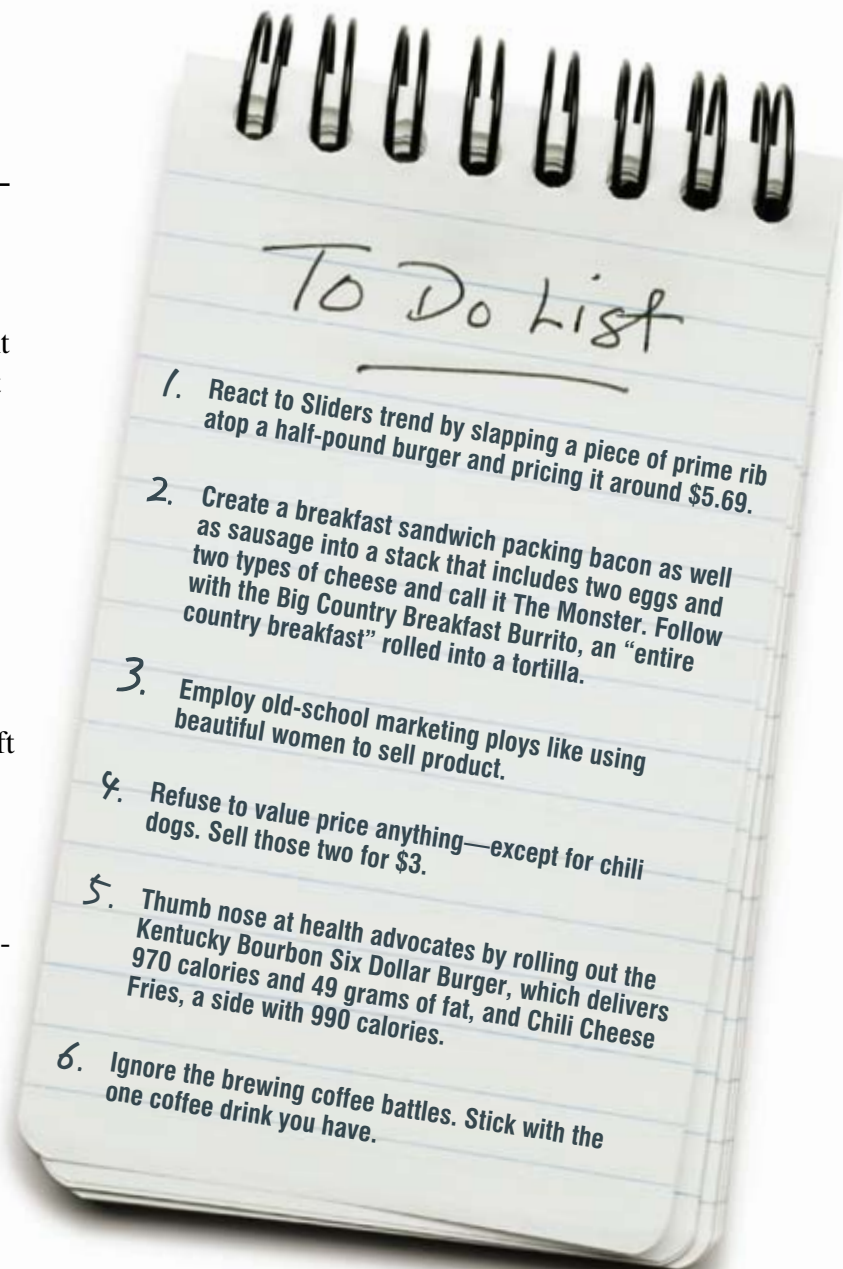 To Do List
1. React to Sliders trend by slapping a piece of prime rib
atop a half-pound burger and pricing it around $5.69.
2. Create a breakfast sandwich packing bacon as well
as sausage into a stack that includes two eggs and
two types of cheese and call it The Monster. Follow
with the Big Country Breakfast Burrito, an “entire
country breakfast” rolled into a tortilla.
3. Employ old-school marketing ploys like using
beautiful women to sell product.
4. Refuse to value price anything—except for chili
dogs. Sell those two for $3.
5. Thumb nose at health advocates by rolling out the
Kentucky Bourbon Six Dollar Burger, which delivers
970 calories and 49 grams of fat, and Chili Cheese
Fries, a side with 990 calories.
6. Ignore the brewing coffee battles. Stick with the
one coffee drink you have.